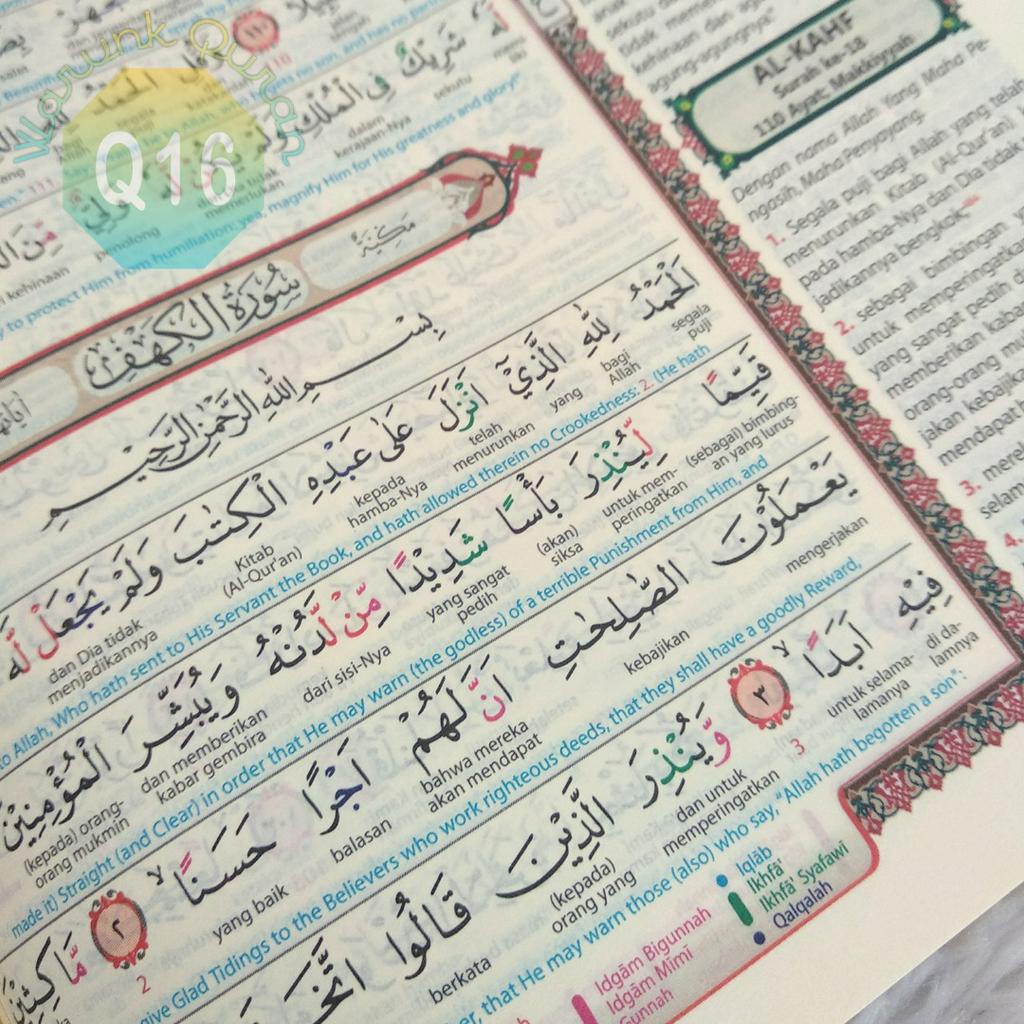 Warunk Quran
Q16
شَرِيْكٌ فِى الْمُلْكِ وَلَمْ
sekutu
dalam kerajaan-Nya
penolong
kehinaan
y to protect Him from humiliation: yea, magnify Him for His greatness and glory!"
سُوْرَةُ الْكَهْفِ
مَكِّيَّةٌ
بِسْمِ اللّٰهِ الرَّحْمٰنِ الرَّحِيْمِ
اَلْحَمْدُ لِلّٰهِ الَّذِيْٓ اَنْزَلَ عَلٰى عَبْدِهِ الْكِتٰبَ وَلَمْ يَجْعَلْ لَّهٗ
segala puji
bagi Allah
yang
telah menurunkan
kepada hamba-Nya
Kitab (Al-Qur'an)
dan Dia tidak menjadikannya
to Allah, Who hath sent to His Servant the Book, and hath allowed therein no Crookedness: 2. (He hath
قَيِّمًا لِّيُنْذِرَ بَأْسًا شَدِيْدًا مِّنْ لَّدُنْهُ وَيُبَشِّرَ الْمُؤْمِنِيْنَ
(sebagai) bimbingan yang lurus
untuk memperingatkan
(akan) siksa
yang sangat pedih
dari sisi-Nya
dan memberikan kabar gembira
(kepada) orang-orang mukmin
made it) Straight (and Clear) in order that He may warn (the godless) of a terrible Punishment from Him, and
يَعْمَلُوْنَ الصّٰلِحٰتِ اَنَّ لَهُمْ اَجْرًا حَسَنًا ۙ ٢ مَّاكِثِيْنَ
mengerjakan
kebajikan
bahwa mereka akan mendapat
balasan
yang baik
2
give Glad Tidings to the Believers who work righteous deeds, that they shall have a goodly Reward,
فِيْهِ اَبَدًا ۙ ٣ وَّيُنْذِرَ الَّذِيْنَ قَالُوا اتَّخَذَ
di dalamnya
untuk selama-lamanya
3
dan untuk memperingatkan
(kepada) orang yang
berkata
er, that He may warn those (also) who say, "Allah hath begotten a son":
Idgām Bigunnah
Idgām Mīmī
Gunnah
Iqlāb
Ikhfā'
Ikhfā' Syafawi
Qalqalah
AL-KAHF
Surah ke-18
110 Ayat; Makkiyyah
Dengan nama Allah Yang Maha Pe-
ngasih, Maha Penyayang.
1. Segala puji bagi Allah yang telah
menurunkan Kitab (Al-Qur'an)
pada hamba-Nya dan Dia tidak
jadikannya bengkok,
2. sebagai bimbingan
untuk memperingatkan
yang sangat pedih
memberikan kabar
orang-orang
jakan kebajikan
mendapat
3.
4.